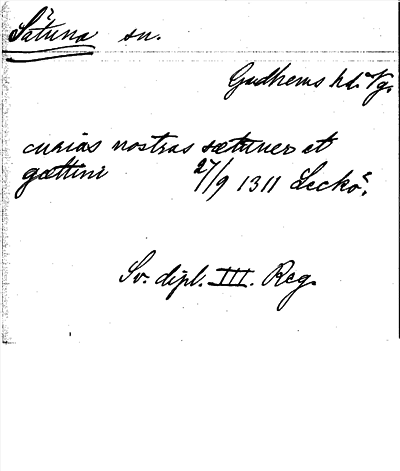 Sätuna sn.
Gudhems hd. Vg.
curias nostras sætuner et
gættini 27/9 1311 Leckö.
Sv. dipl. III. Reg.